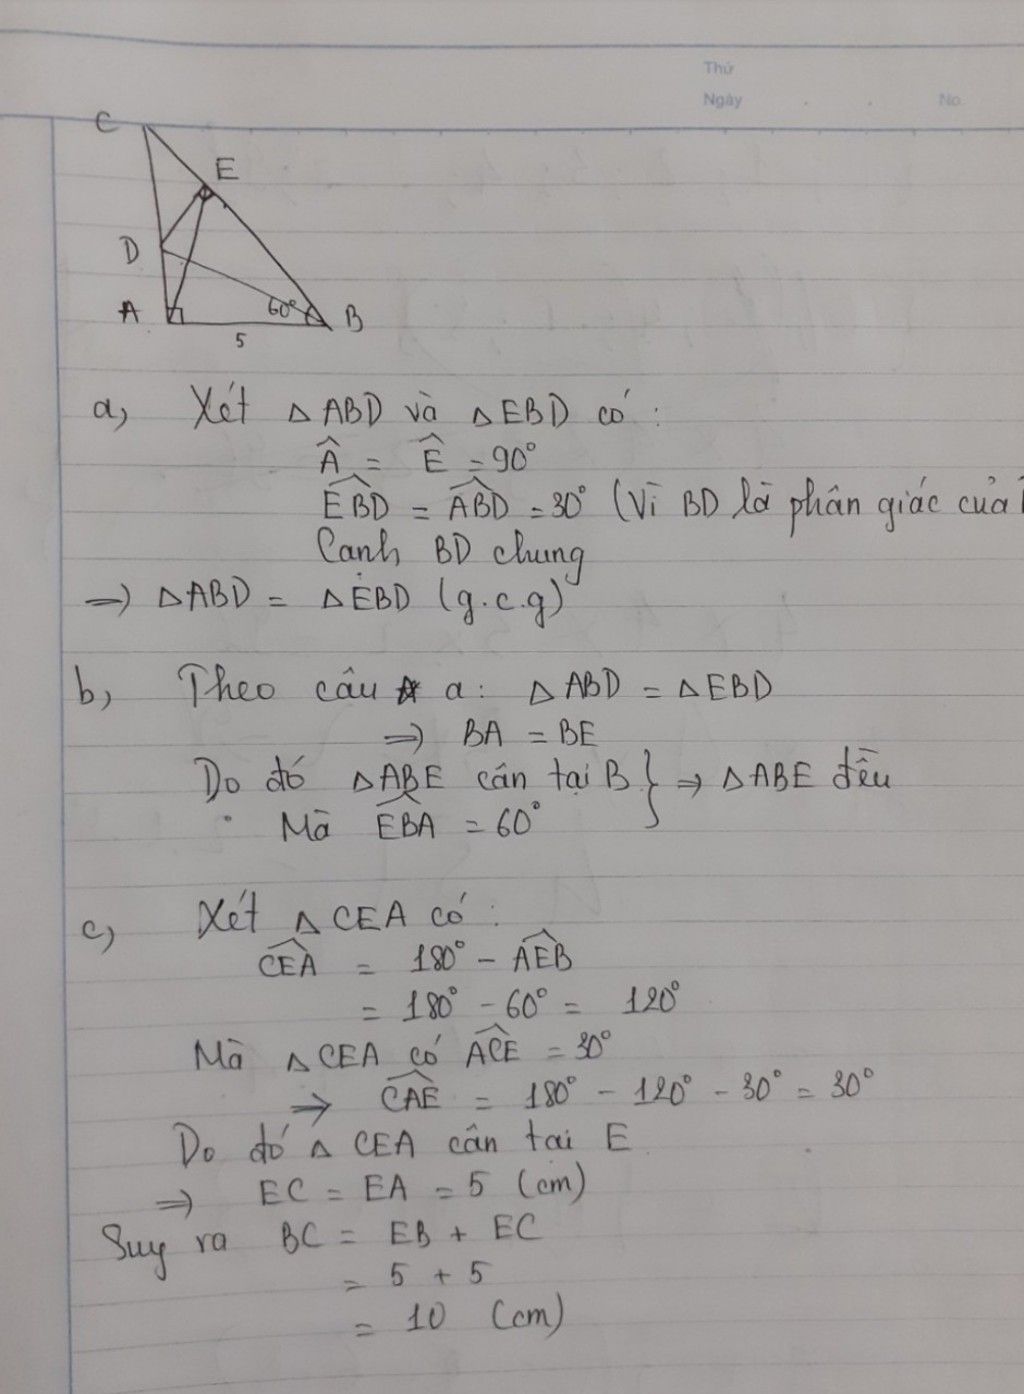 Thứ
Ngày . . No.
C
E
D
A
60°
B
5
a, Xét △ABD và △EBD có:
Â = Ê = 90°
EBD = ABD = 30° (Vì BD là phân giác của
Cạnh BD chung
=> △ABD = △EBD (g.c.g)
b, Theo câu a: △ABD = △EBD
=> BA = BE
Do đó △ABE cân tại B } => △ABE đều
Mà EBA = 60°
c, Xét △CEA có:
CEA = 180° - AEB
= 180° - 60° = 120°
Mà △CEA có ACE = 30°
=> CAE = 180° - 120° - 30° = 30°
Do đó △CEA cân tại E
=> EC = EA = 5 (cm)
Suy ra BC = EB + EC
= 5 + 5
= 10 (cm)